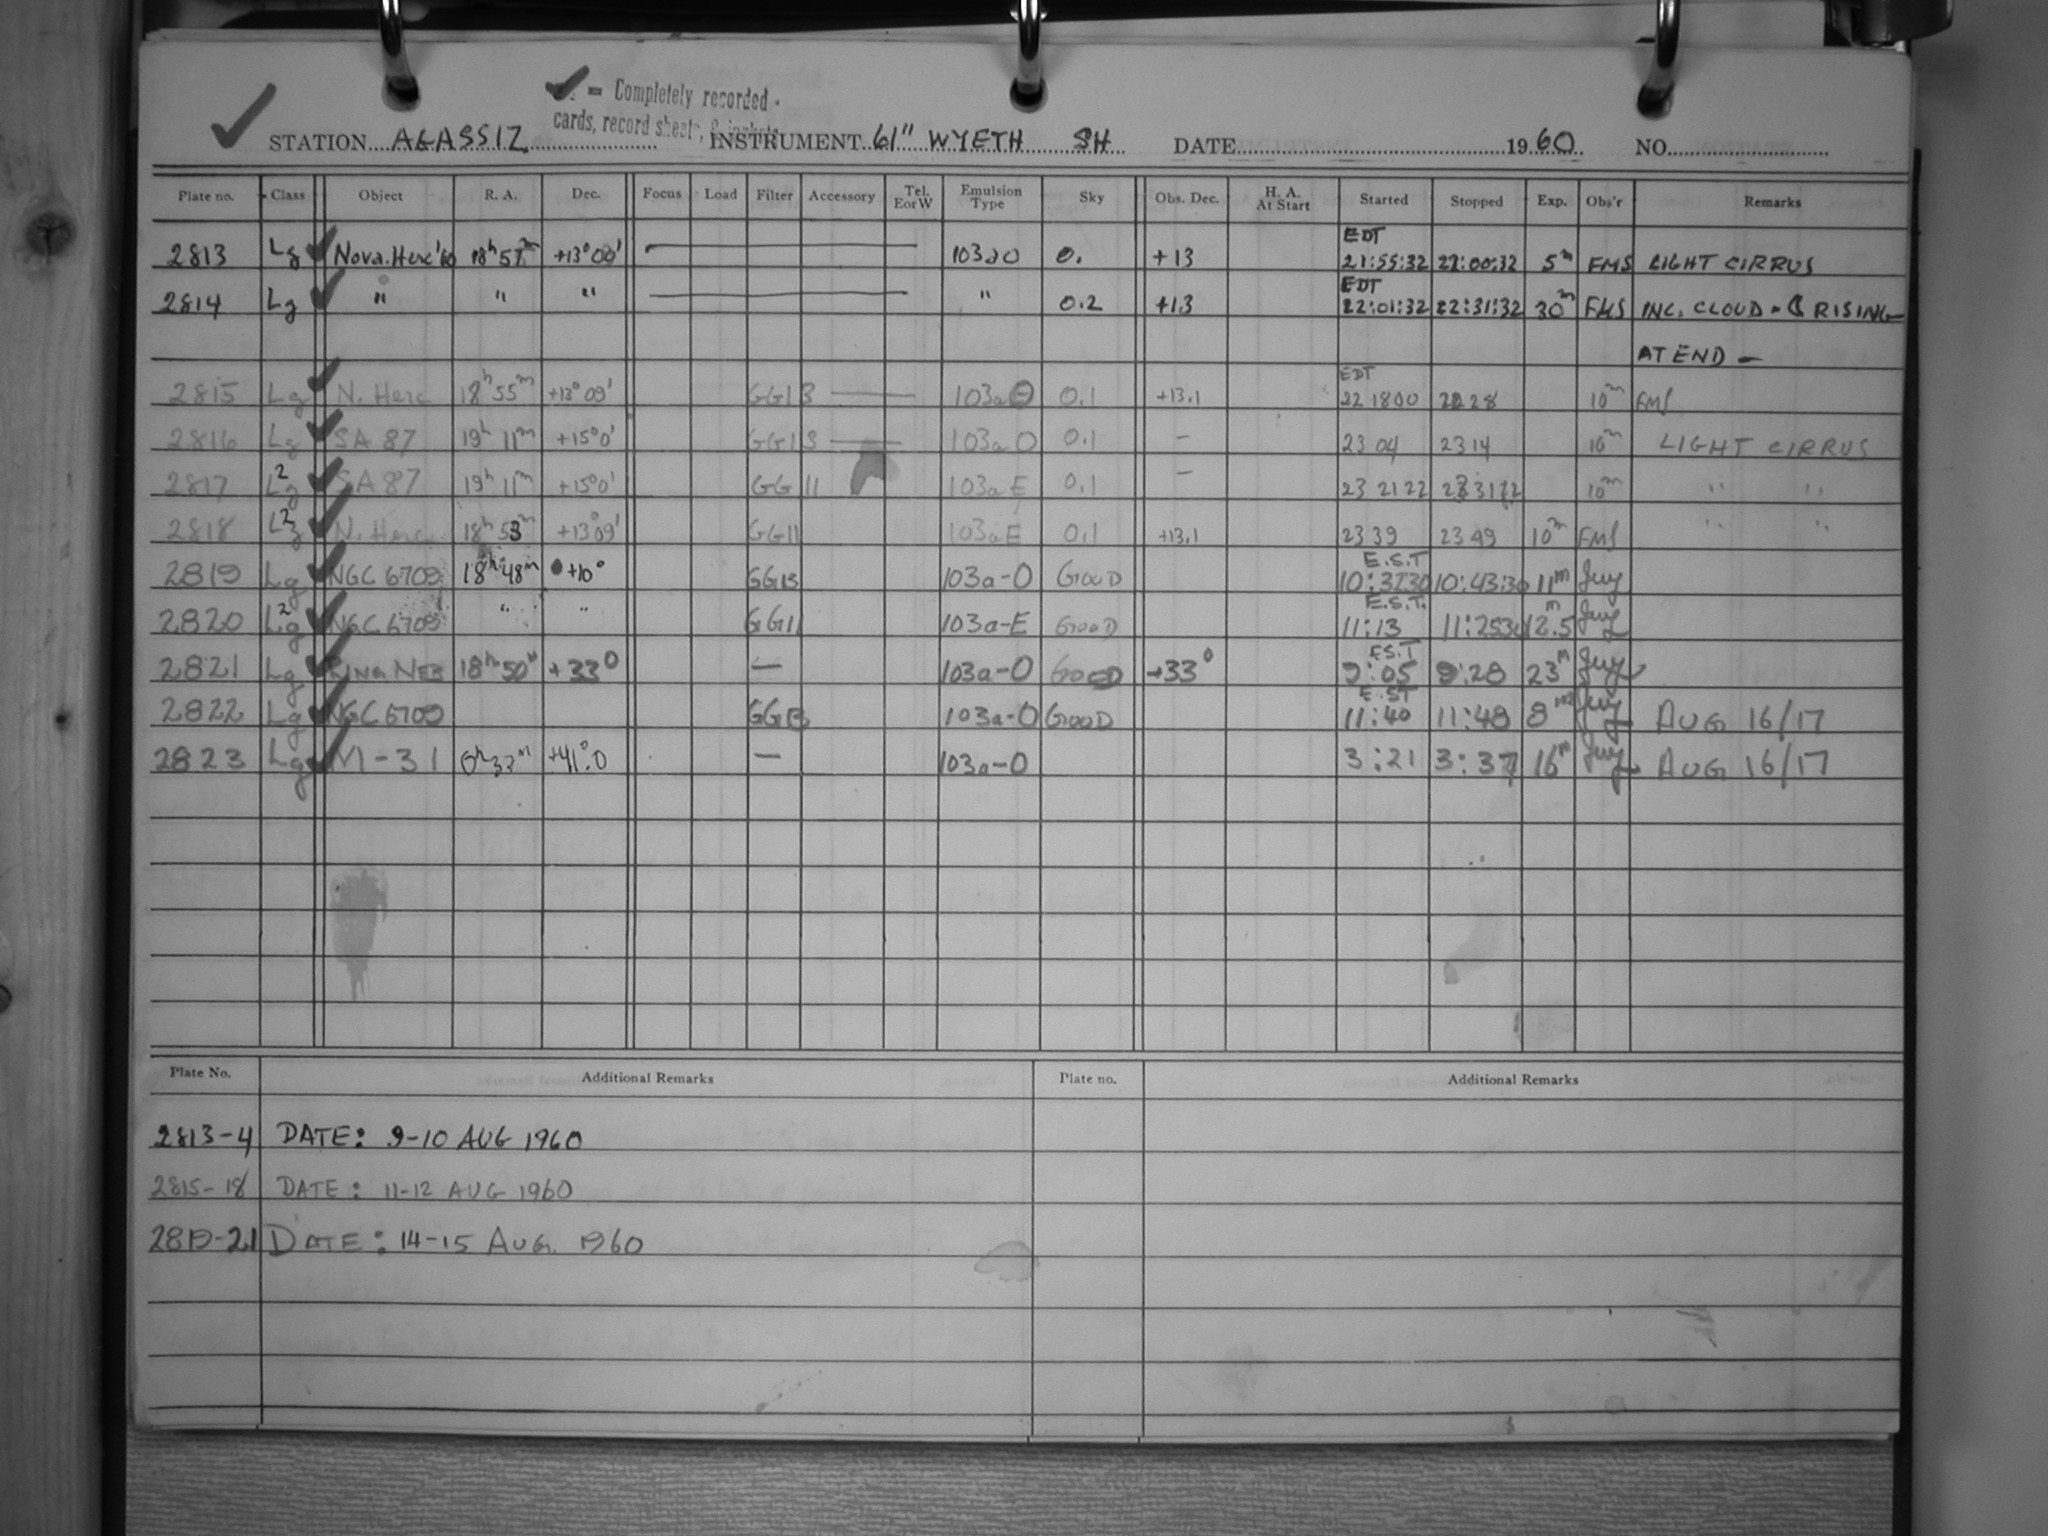 ✓ = Completely recorded -
cards, record sheets, & jackets
STATION AGASSIZ INSTRUMENT 61" WYETH SH DATE 1960 NO.
Plate no. Class Object R. A. Dec. Focus Load Filter Accessory Tel. E or W Emulsion Type Sky Obs. Dec. H. A. At Start Started Stopped Exp. Obs'r Remarks
EDT
2813 Lg Nova Herc '60 18h 57m +13° 00' 103aO 0. +13 21:55:32 22:00:32 5m FMS LIGHT CIRRUS
EDT
2814 Lg " " " " 0.2 +13 22:01:32 22:31:32 30m FMS INC. CLOUD - RISING
AT END -
EDT
2815 Lg N. Herc 18h 55m +13° 09' GG13 103aO 0.1 +13.1 22 18 00 22 28 10m FMS
2816 Lg SA 87 19h 11m +15°0' GG13 103aO 0.1 - 23 04 23 14 10m LIGHT CIRRUS
2817 L2g SA 87 19h 11m +15°0' GG 11 103aE 0.1 - 23 21 22 23 31 22 10m " "
2818 L2g N. Herc 18h 53m +13°09' GG11 103aE 0.1 +13.1 23 39 23 49 10m FMS " "
E.S.T
2819 Lg NGC 6709 18h 48m +10° GG13 103a-O GOOD 10:32 30 10:43:30 11m Guy
E.S.T.
2820 L2g NGC 6709 " " GG11 103a-E GOOD 11:13 11:25 30 12.5m Guy
E.S.T
2821 Lg RING NEB 18h 50m +33° — 103a-O GOOD +33° 9:05 9:28 23m Guy
E.ST
2822 Lg NGC 6709 GG13 103a-O GOOD 11:40 11:48 8m Guy AUG 16/17
2823 Lg M-31 0h 37m +41°.0 — 103a-O 3:21 3:37 16m Guy AUG 16/17
Plate No. Additional Remarks Plate no. Additional Remarks
2813-4 DATE: 9-10 AUG 1960
2815-18 DATE: 11-12 AUG 1960
2819-21 DATE: 14-15 AUG. 1960